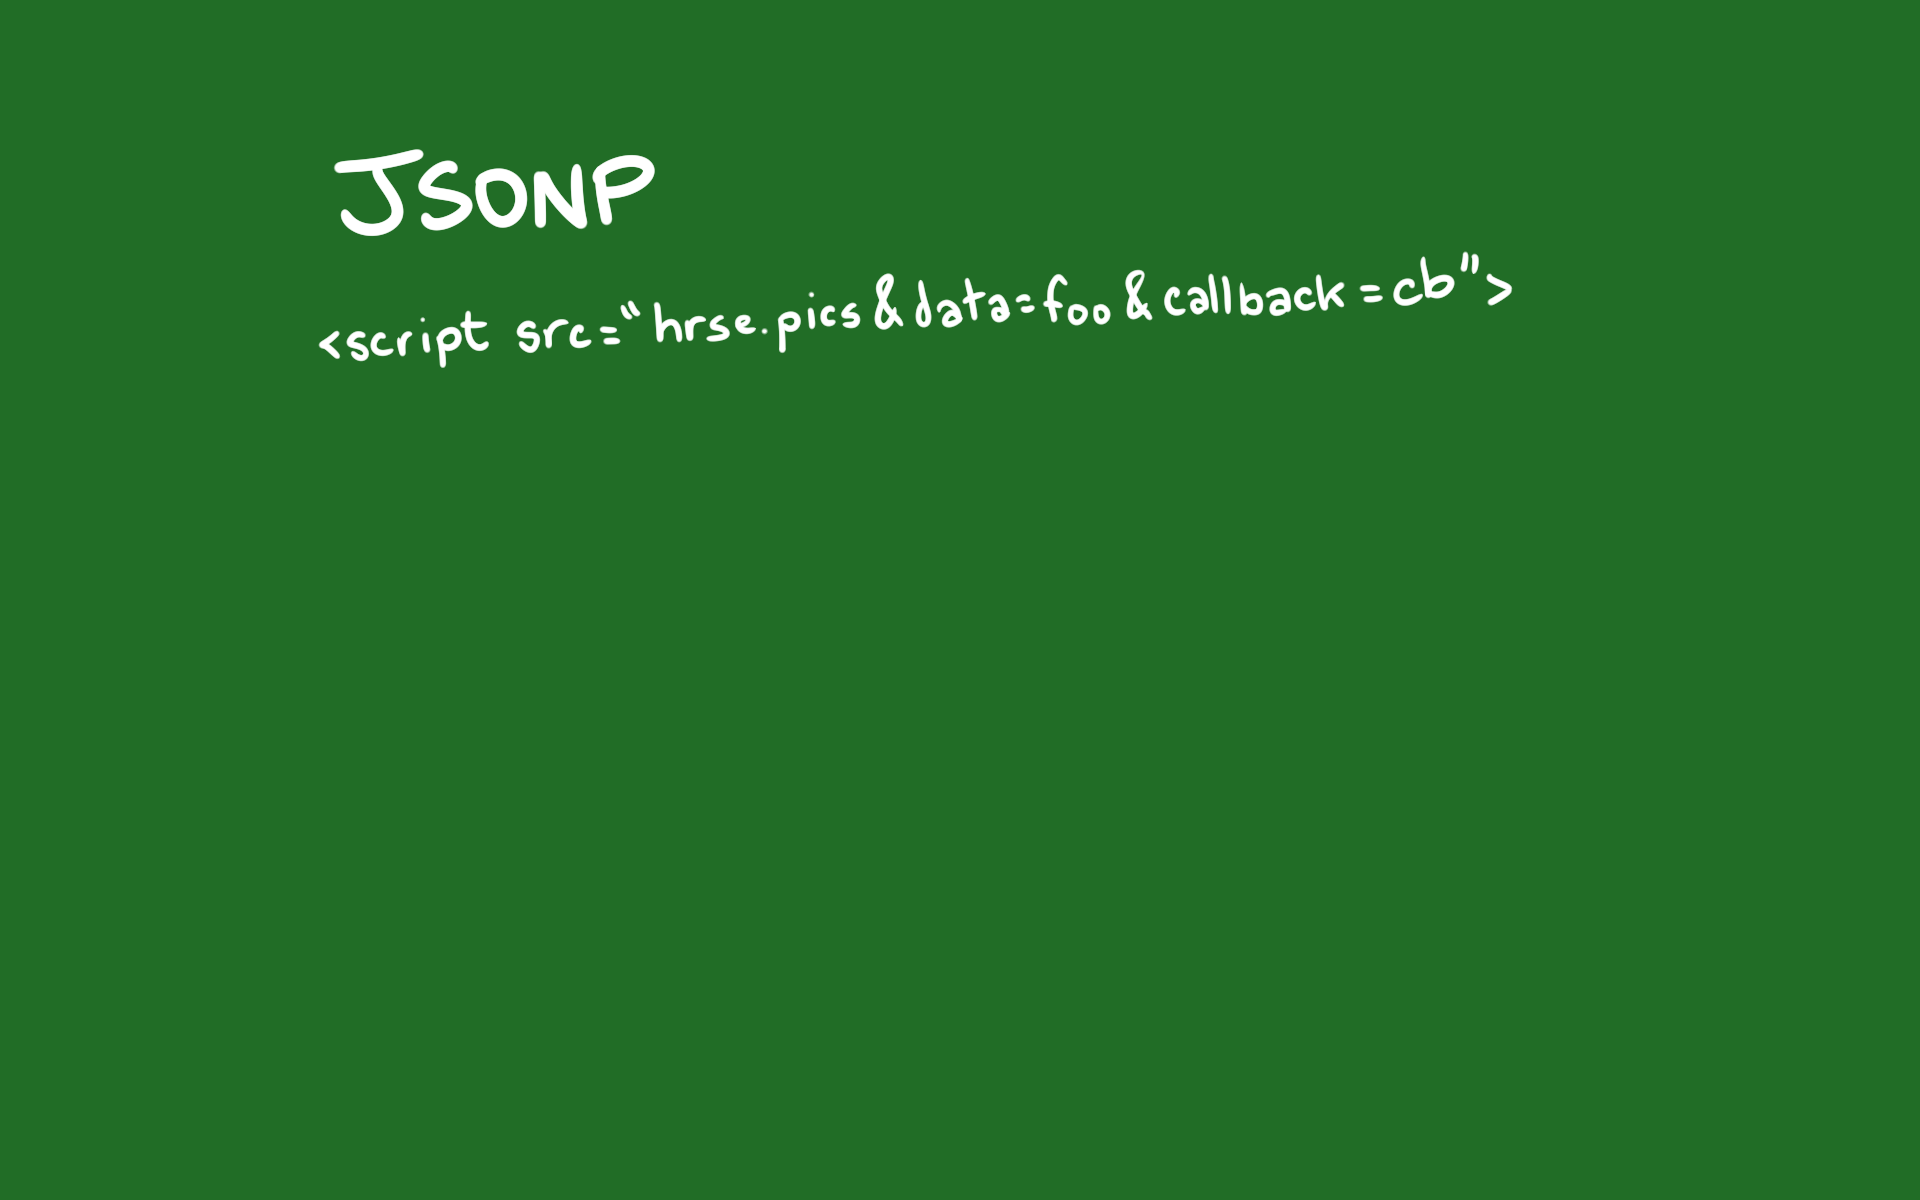 JSONP
<script src="hrse.pics&data=foo&callback=cb">